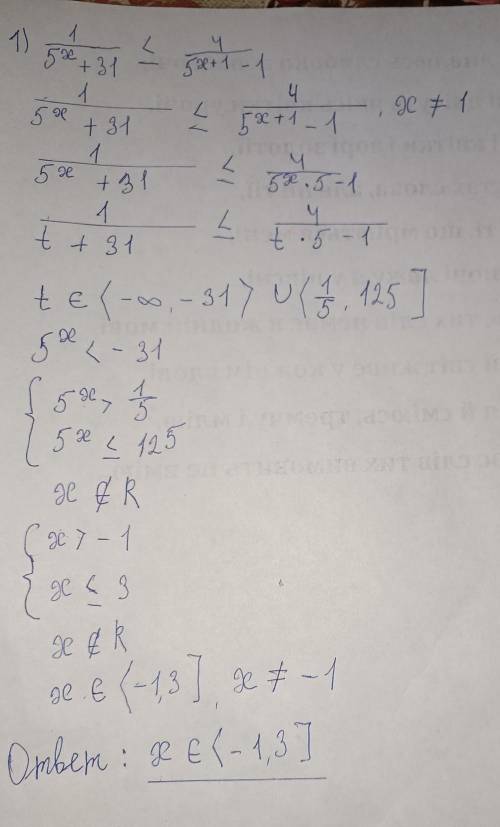 1) 1/(5^x + 31) ≤ 4/(5^(x+1) - 1)
1/(5^x + 31) ≤ 4/(5^(x+1) - 1), x ≠ 1
1/(5^x + 31) ≤ 4/(5^x · 5 - 1)
1/(t + 31) ≤ 4/(t · 5 - 1)
t ∈ ⟨-∞, -31⟩ ∪ ⟨1/5, 125]
5^x < -31
{ 5^x > 1/5
5^x ≤ 125
x ∉ R
{ x > -1
x ≤ 3
x ∉ R
x ∈ ⟨-1,3], x ≠ -1
Ответ: x ∈ ⟨-1,3]